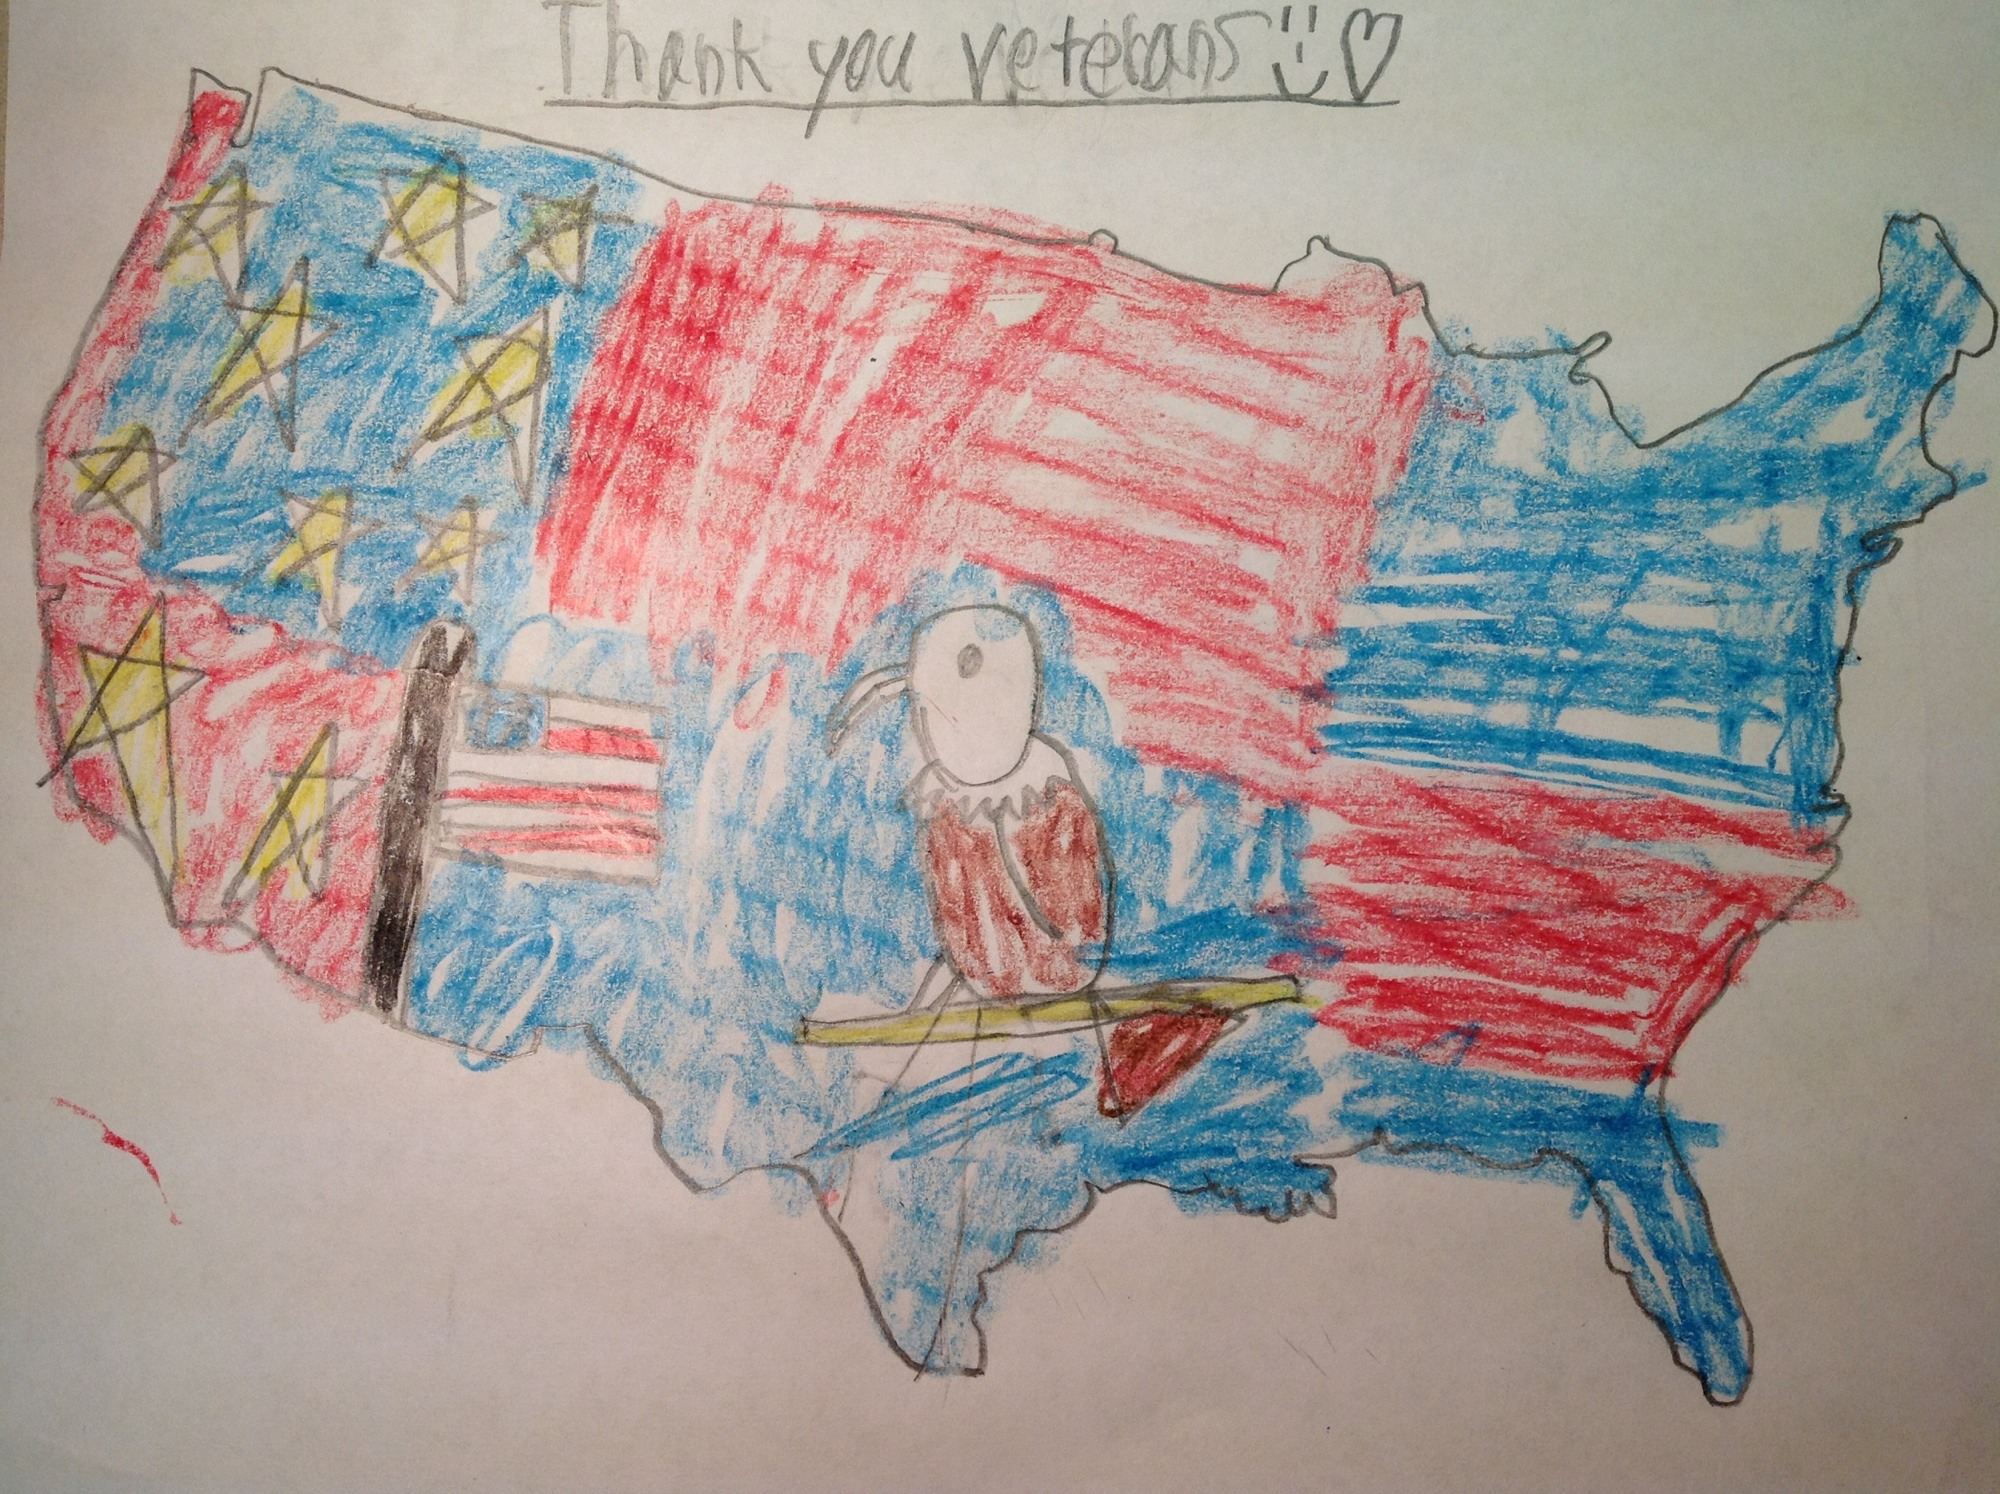 Thank you veterans